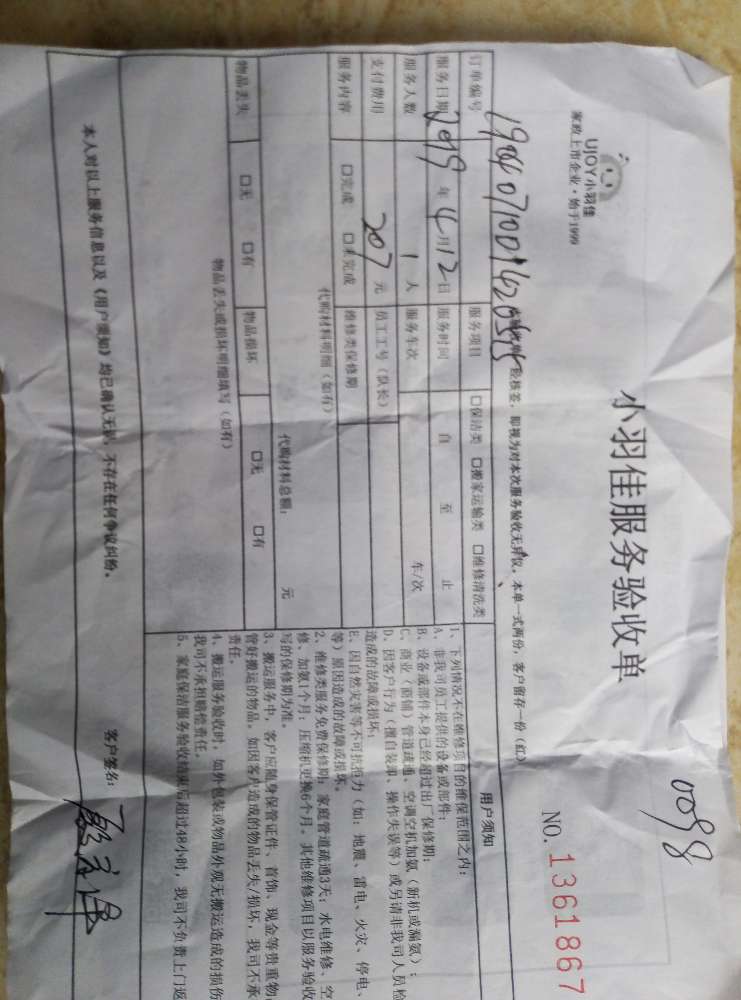 0098
小羽佳服务验收单
NO.1361867
UJOY小羽佳
家政上市企业·始于1999
核签，即视为对本次服务验收无异议。本单一式两份，客户留存一份（红）
订单编号
服务项目 □保洁类 □搬家运输类 □维修清洗类
服务日期 2019年4月12日 服务时间 自 至 止
服务人数 1人 服务车次 车/次
支付费用 207元 员工工号（队长）
服务内容 □完成 □未完成 维修类保修期
代购材料明细（如有）
代购材料总额： 元
物品丢失 □无 □有 物品损坏 □无 □有
物品丢失或损坏明细填写（如有）
用户须知
1、下列情况不在维修项目的维保范围之内：
A、非我司员工提供的设备或部件；
B、设备或部件本身已经超过出厂保修期；
C、商业（商铺）管道疏通、空调空机加氨（新机或漏氨）；
D、因客户行为（擅自装卸、操作失误等）或另请非我司人员检
造成的故障或损坏；
E、因自然灾害等不可抗拒力（如：地震、雷电、火灾、停电、
等）原因造成的故障或损坏。
2、维修类服务免费保修期：家庭管道疏通3天；水电维修、空
修、加氨1个月；压缩机更换6个月。其他维修项目以服务验收
写的保修期为准。
3、搬运服务中，客户应随身保管证件、首饰、现金等贵重物
管好搬运的物品，如因客户造成的物品丢失/损坏，我司不承
责任。
4、搬运服务验收时，如外包装或物品外观无搬运造成的损伤
我司不承担赔偿责任。
5、家庭保洁服务验收结束后超过48小时，我司不负责上门返
本人对以上服务信息以及《用户须知》均已确认无误，不存在任何争议纠纷。
客户签名：